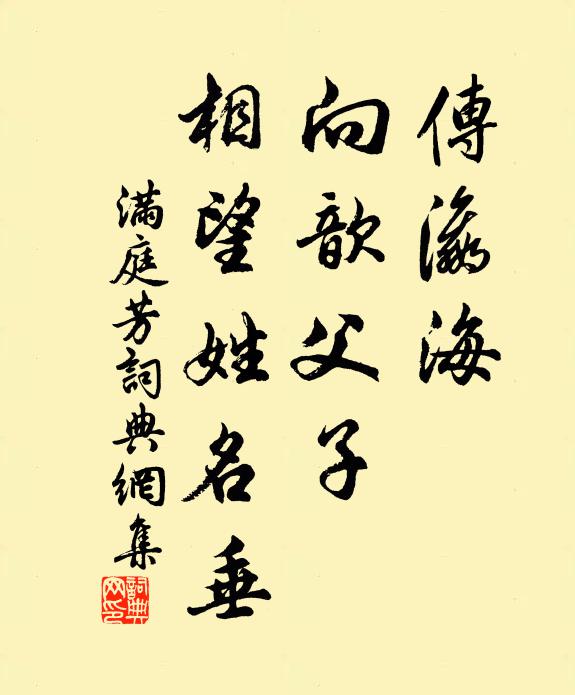 傳瀛海
向歆父子
相望姓名垂
滿庭芳詞典網集
詞典网印